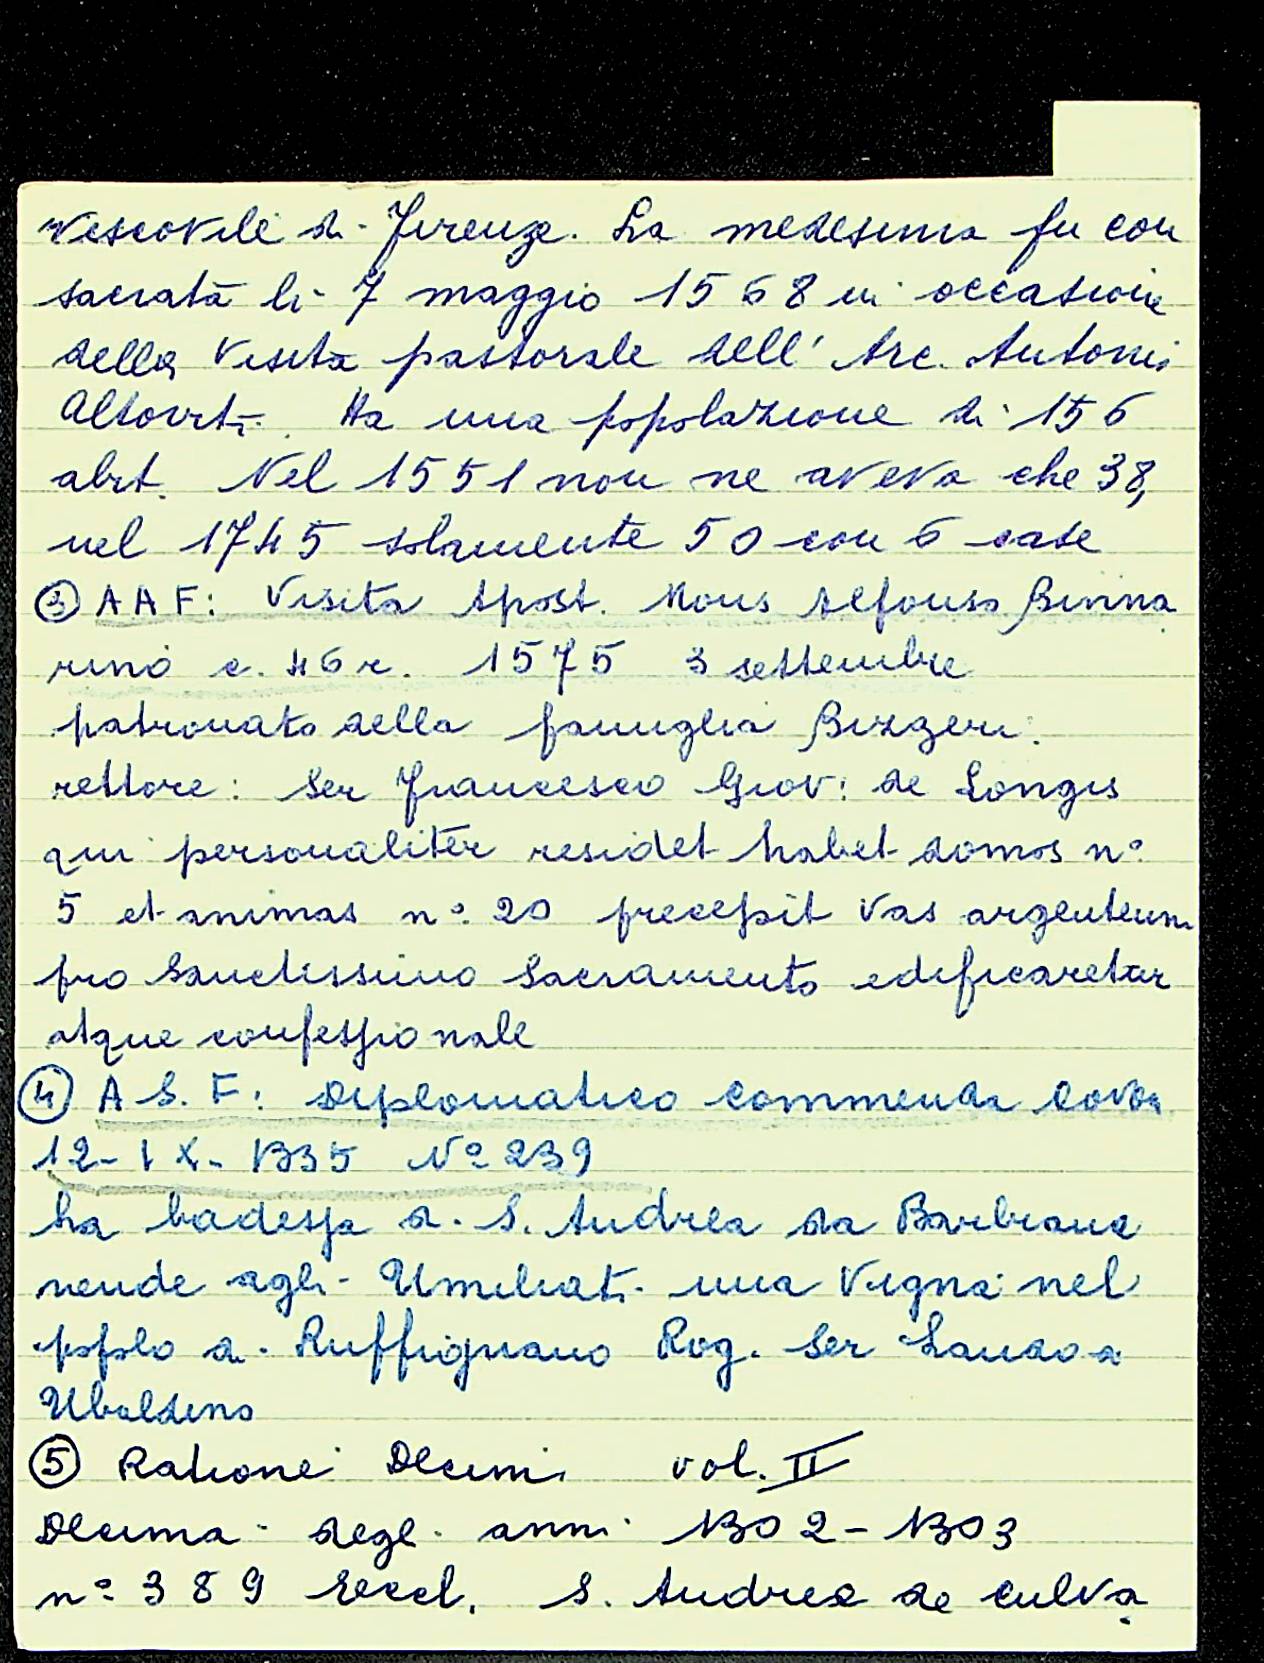 Vescovile di Firenze. La medesima fu con
sacrata li 7 maggio 1568 in occasione
della Visita pastorale dell' Arc. Antoni
Altoviti. Ha una popolazione di 156
abit. Nel 1551 non ne aveva che 38,
nel 1745 solamente 50 con 6 case
③ A A F: Visita Apost. Mons Alfonso Binna
rino c. 46 r. 1575 3 settembre
patronato della famiglia Bizzeri.
rettore: Ser Francesco Giov: de Longis
qui personaliter residet habet domos n°
5 et animas n° 20 precepit vas argenteum
pro Sanctissimo Sacramento edificaretur
atque confessionale
④ A S. F: Diplomatico Commenda Covi
12-IX-1335 N° 239
ha badessa di S. Andrea da Barbiana
vende agli Umiliati una Vigna nel
popolo di Ruffignano Rog. Ser Lando di
Ubaldino
⑤ Rationei Decimi vol. II
Decima degli anni 1302-1303
n° 389 Eccl. S. Andrea de Culva